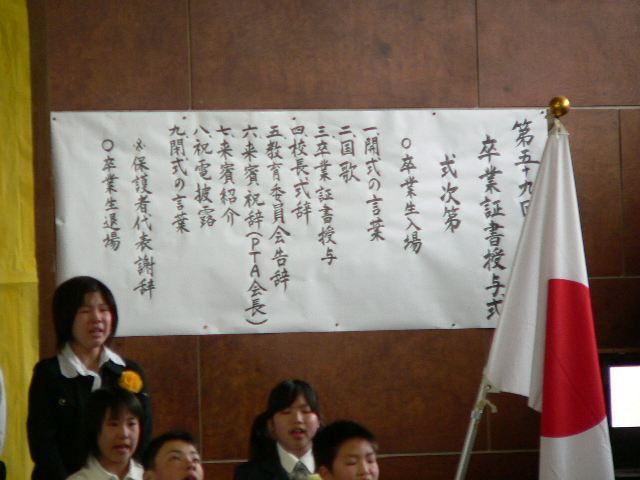 第五十九回
卒業証書授与式
式次第
○卒業生入場
一、開式の言葉
二、国歌
三、卒業証書授与
四、校長式辞
五、教育委員会告辞
六、来賓祝辞(PTA会長)
七、来賓紹介
八、祝電披露
九、閉式の言葉
※保護者代表謝辞
○卒業生退場